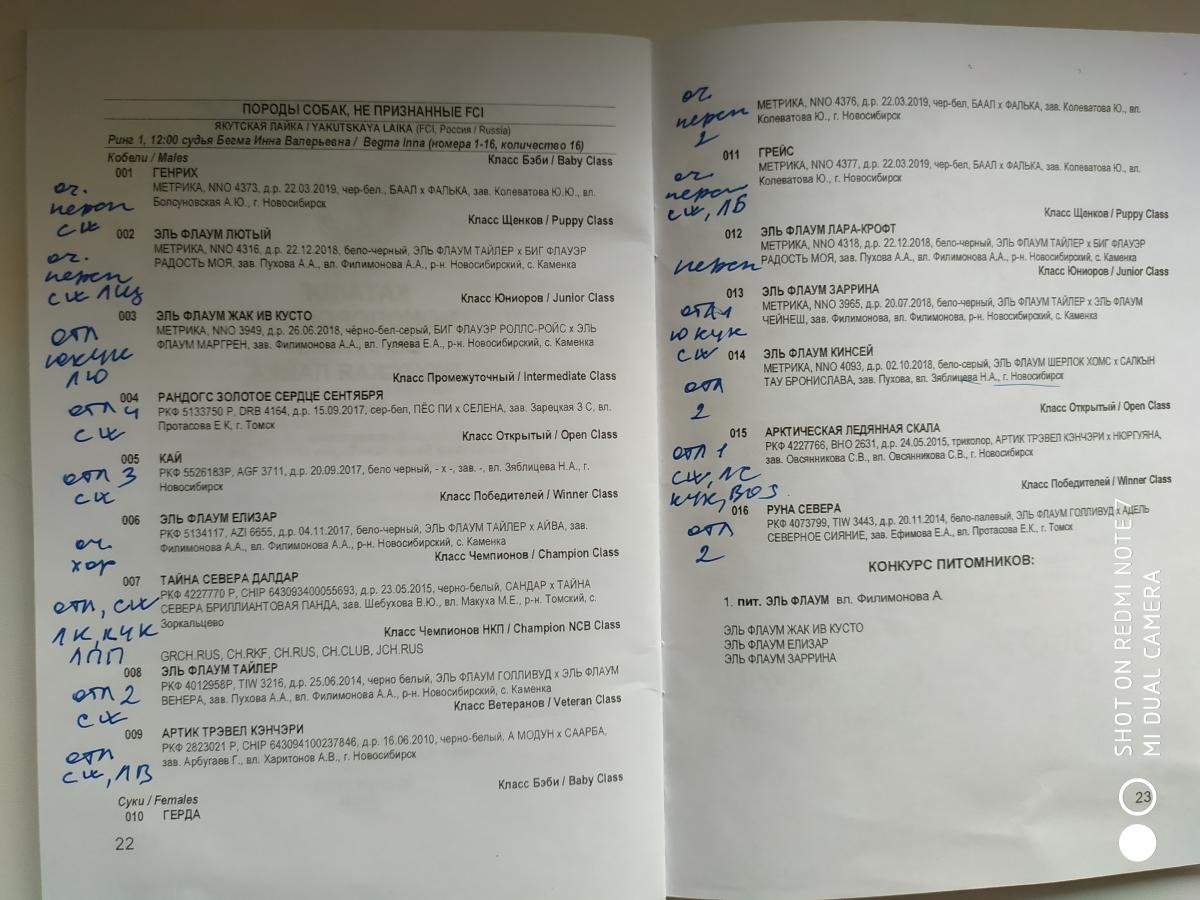 ПОРОДЫ СОБАК, НЕ ПРИЗНАННЫЕ FCI
ЯКУТСКАЯ ЛАЙКА / YAKUTSKAYA LAIKA (FCI, Россия / Russia)
Ринг 1, 12:00 судья Бегма Инна Валерьевна / Begma Inna (номера 1-16, количество 16)
Кобели / Males
Класс Бэби / Baby Class
001 ГЕНРИХ
МЕТРИКА, NNO 4373, д.р. 22.03.2019, чер-бел., БААЛ х ФАЛЬКА, зав. Колеватова Ю.Ю., вл.
Болсуновская А.Ю., г. Новосибирск
оч.
персп
сж
Класс Щенков / Puppy Class
002 ЭЛЬ ФЛАУМ ЛЮТЫЙ
МЕТРИКА, NNO 4316, д.р. 22.12.2018, бело-черный, ЭЛЬ ФЛАУМ ТАЙЛЕР х БИГ ФЛАУЭР
РАДОСТЬ МОЯ, зав. Пухова А.А., вл. Филимонова А.А., р-н. Новосибирский, с. Каменка
оч.
персп
сж ЛЩ
Класс Юниоров / Junior Class
003 ЭЛЬ ФЛАУМ ЖАК ИВ КУСТО
МЕТРИКА, NNO 3949, д.р. 26.06.2018, чёрно-бел-серый, БИГ ФЛАУЭР РОЛЛС-РОЙС х ЭЛЬ
ФЛАУМ МАРГРЕН, зав. Филимонова А.А., вл. Гуляева Е.А., р-н. Новосибирский, с. Каменка
отл
юкчк
ЛЮ
Класс Промежуточный / Intermediate Class
004 РАНДОГС ЗОЛОТОЕ СЕРДЦЕ СЕНТЯБРЯ
РКФ 5133750 Р, DRB 4164, д.р. 15.09.2017, сер-бел, ПЁС ПИ х СЕЛЕНА, зав. Зарецкая З С, вл.
Протасова Е К, г. Томск
отл 4
сж
Класс Открытый / Open Class
005 КАЙ
РКФ 5526183Р, AGF 3711, д.р. 20.09.2017, бело черный, - х -, зав. -, вл. Зяблицева Н.А., г.
Новосибирск
отл 3
сж
Класс Победителей / Winner Class
006 ЭЛЬ ФЛАУМ ЕЛИЗАР
РКФ 5134117, AZI 6655, д.р. 04.11.2017, бело-черный, ЭЛЬ ФЛАУМ ТАЙЛЕР х АЙВА, зав.
Филимонова А.А., вл. Филимонова А.А., р-н. Новосибирский, с. Каменка
оч.
хор
Класс Чемпионов / Champion Class
007 ТАЙНА СЕВЕРА ДАЛДАР
РКФ 4227770 Р, CHIP 643093400055693, д.р. 23.05.2015, черно-белый, САНДАР х ТАЙНА
СЕВЕРА БРИЛЛИАНТОВАЯ ПАНДА, зав. Шебухова В.Ю., вл. Макуха М.Е., р-н. Томский, с.
Зоркальцево
отл, сж
ЛК, КЧК
ЛПП
Класс Чемпионов НКП / Champion NCB Class
GRCH.RUS, CH.RKF, CH.RUS, CH.CLUB, JCH.RUS
008 ЭЛЬ ФЛАУМ ТАЙЛЕР
РКФ 4012958Р, TIW 3216, д.р. 25.06.2014, черно белый, ЭЛЬ ФЛАУМ ГОЛЛИВУД х ЭЛЬ ФЛАУМ
ВЕНЕРА, зав. Пухова А.А., вл. Филимонова А.А., р-н. Новосибирский, с. Каменка
отл 2
сж
Класс Ветеранов / Veteran Class
009 АРТИК ТРЭВЕЛ КЭНЧЭРИ
РКФ 2823021 Р, CHIP 643094100237846, д.р. 16.06.2010, черно-белый, А МОДУН х СААРБА,
зав. Арбугаев Г., вл. Харитонов А.В., г. Новосибирск
отл
сж, ЛВ
Класс Бэби / Baby Class
Суки / Females
010 ГЕРДА
22
МЕТРИКА, NNO 4376, д.р. 22.03.2019, чер-бел, БААЛ х ФАЛЬКА, зав. Колеватова Ю., вл.
Колеватова Ю., г. Новосибирск
оч.
персп
2
011 ГРЕЙС
МЕТРИКА, NNO 4377, д.р. 22.03.2019, чер-бел, БААЛ х ФАЛЬКА, зав. Колеватова Ю., вл.
Колеватова Ю., г. Новосибирск
оч
персп
сж, ЛБ
Класс Щенков / Puppy Class
012 ЭЛЬ ФЛАУМ ЛАРА-КРОФТ
МЕТРИКА, NNO 4318, д.р. 22.12.2018, бело-черный, ЭЛЬ ФЛАУМ ТАЙЛЕР х БИГ ФЛАУЭР
РАДОСТЬ МОЯ, зав. Пухова А.А., вл. Филимонова А.А., р-н. Новосибирский, с. Каменка
персп
Класс Юниоров / Junior Class
013 ЭЛЬ ФЛАУМ ЗАРРИНА
МЕТРИКА, NNO 3965, д.р. 20.07.2018, бело-черный, ЭЛЬ ФЛАУМ ТАЙЛЕР х ЭЛЬ ФЛАУМ
ЧЕЙНЕШ, зав. Филимонова, вл. Филимонова, р-н. Новосибирский, с. Каменка
отл 1
юкчк
сж
014 ЭЛЬ ФЛАУМ КИНСЕЙ
МЕТРИКА, NNO 4093, д.р. 02.10.2018, бело-серый, ЭЛЬ ФЛАУМ ШЕРЛОК ХОМС х САЛКЫН
ТАУ БРОНИСЛАВА, зав. Пухова, вл. Зяблицева Н.А., г. Новосибирск
отл
2
Класс Открытый / Open Class
015 АРКТИЧЕСКАЯ ЛЕДЯННАЯ СКАЛА
РКФ 4227766, BHO 2631, д.р. 24.05.2015, триколор, АРТИК ТРЭВЕЛ КЭНЧЭРИ х НЮРГУЯНА,
зав. Овсянникова С.В., вл. Овсянникова С.В., г. Новосибирск
отл 1
сж, ЛС
КЧК, BOS
Класс Победителей / Winner Class
016 РУНА СЕВЕРА
РКФ 4073799, TIW 3443, д.р. 20.11.2014, бело-палевый, ЭЛЬ ФЛАУМ ГОЛЛИВУД х АДЕЛЬ
СЕВЕРНОЕ СИЯНИЕ, зав. Ефимова Е.А., вл. Протасова Е.К., г. Томск
отл
2
КОНКУРС ПИТОМНИКОВ:
1. пит. ЭЛЬ ФЛАУМ вл. Филимонова А.
ЭЛЬ ФЛАУМ ЖАК ИВ КУСТО
ЭЛЬ ФЛАУМ ЕЛИЗАР
ЭЛЬ ФЛАУМ ЗАРРИНА
23
SHOT ON REDMI NOTE 7
MI DUAL CAMERA